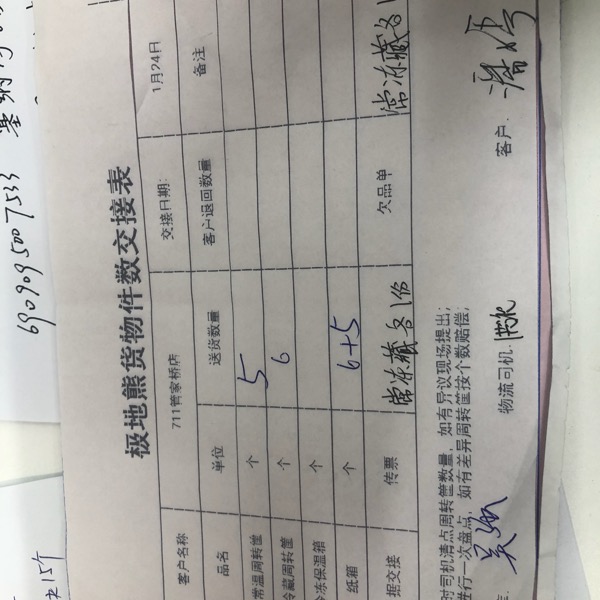 极地熊货物件数交接表
客户名称 711管家桥店 交接日期: 1月24日
品名 单位 送货数量 客户退回数量 备注
常温周转筐 个 5
冷藏周转筐 个 6
冷冻保温箱 个
纸箱 个 6+5
据交接 传票 常冻藏各1份 欠品单 常冻藏各1
时司机清点周转筐数量，如有异议现场提出；
进行一次盘点，如有差异周转筐按个数赔偿；
物流司机: 客户:
6909095007533